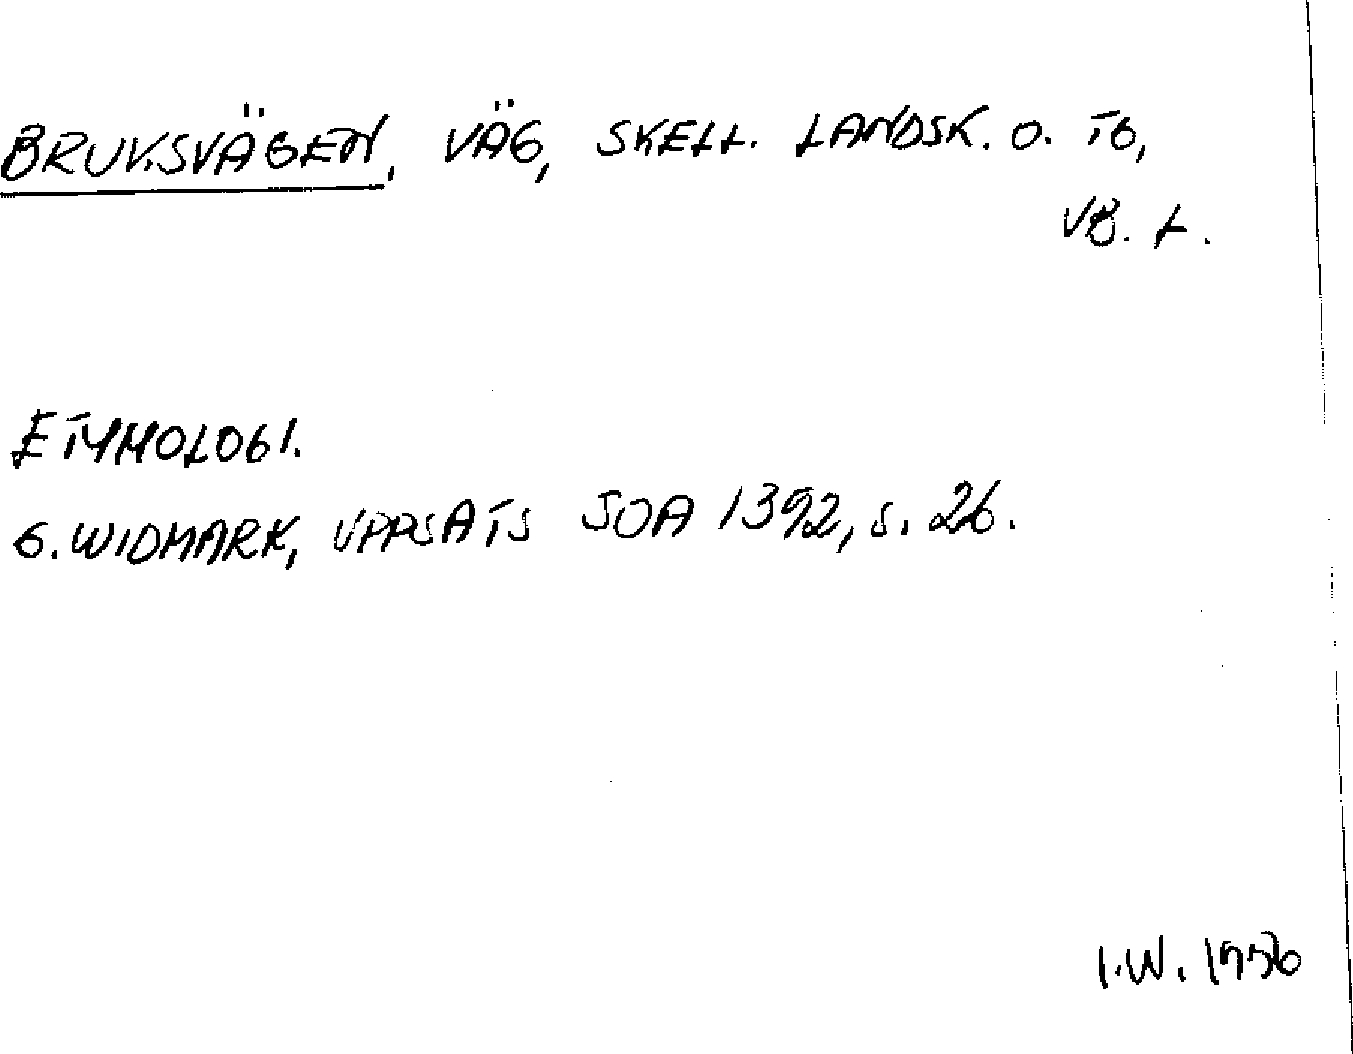 BRUKSVÄGEN, VÄG, SKELL. LANDSK. O. TG,
VB. L.
ETYMOLOGI.
G. WIDMARK, UPPSATS SOA 1392, S. 26.
I.W. 1956